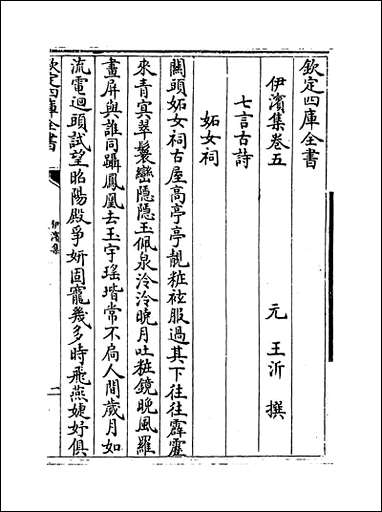 欽定四庫全書
伊濱集卷五
元 王沂 撰
七言古詩
妬女祠
關頭妬女祠古屋高亭亭靚粧袨服過其下往往霹靂
來青寘翠鬟巒隠隠玉佩泉泠泠晚月吐粧鏡晚風羅
畫屏與誰同躡鳳凰去玉宇瑶堦常不扃人間歲月如
流電迴頭試望昭陽殿爭妍固寵幾多時飛燕婕妤俱
欽定四庫全書
伊濱集